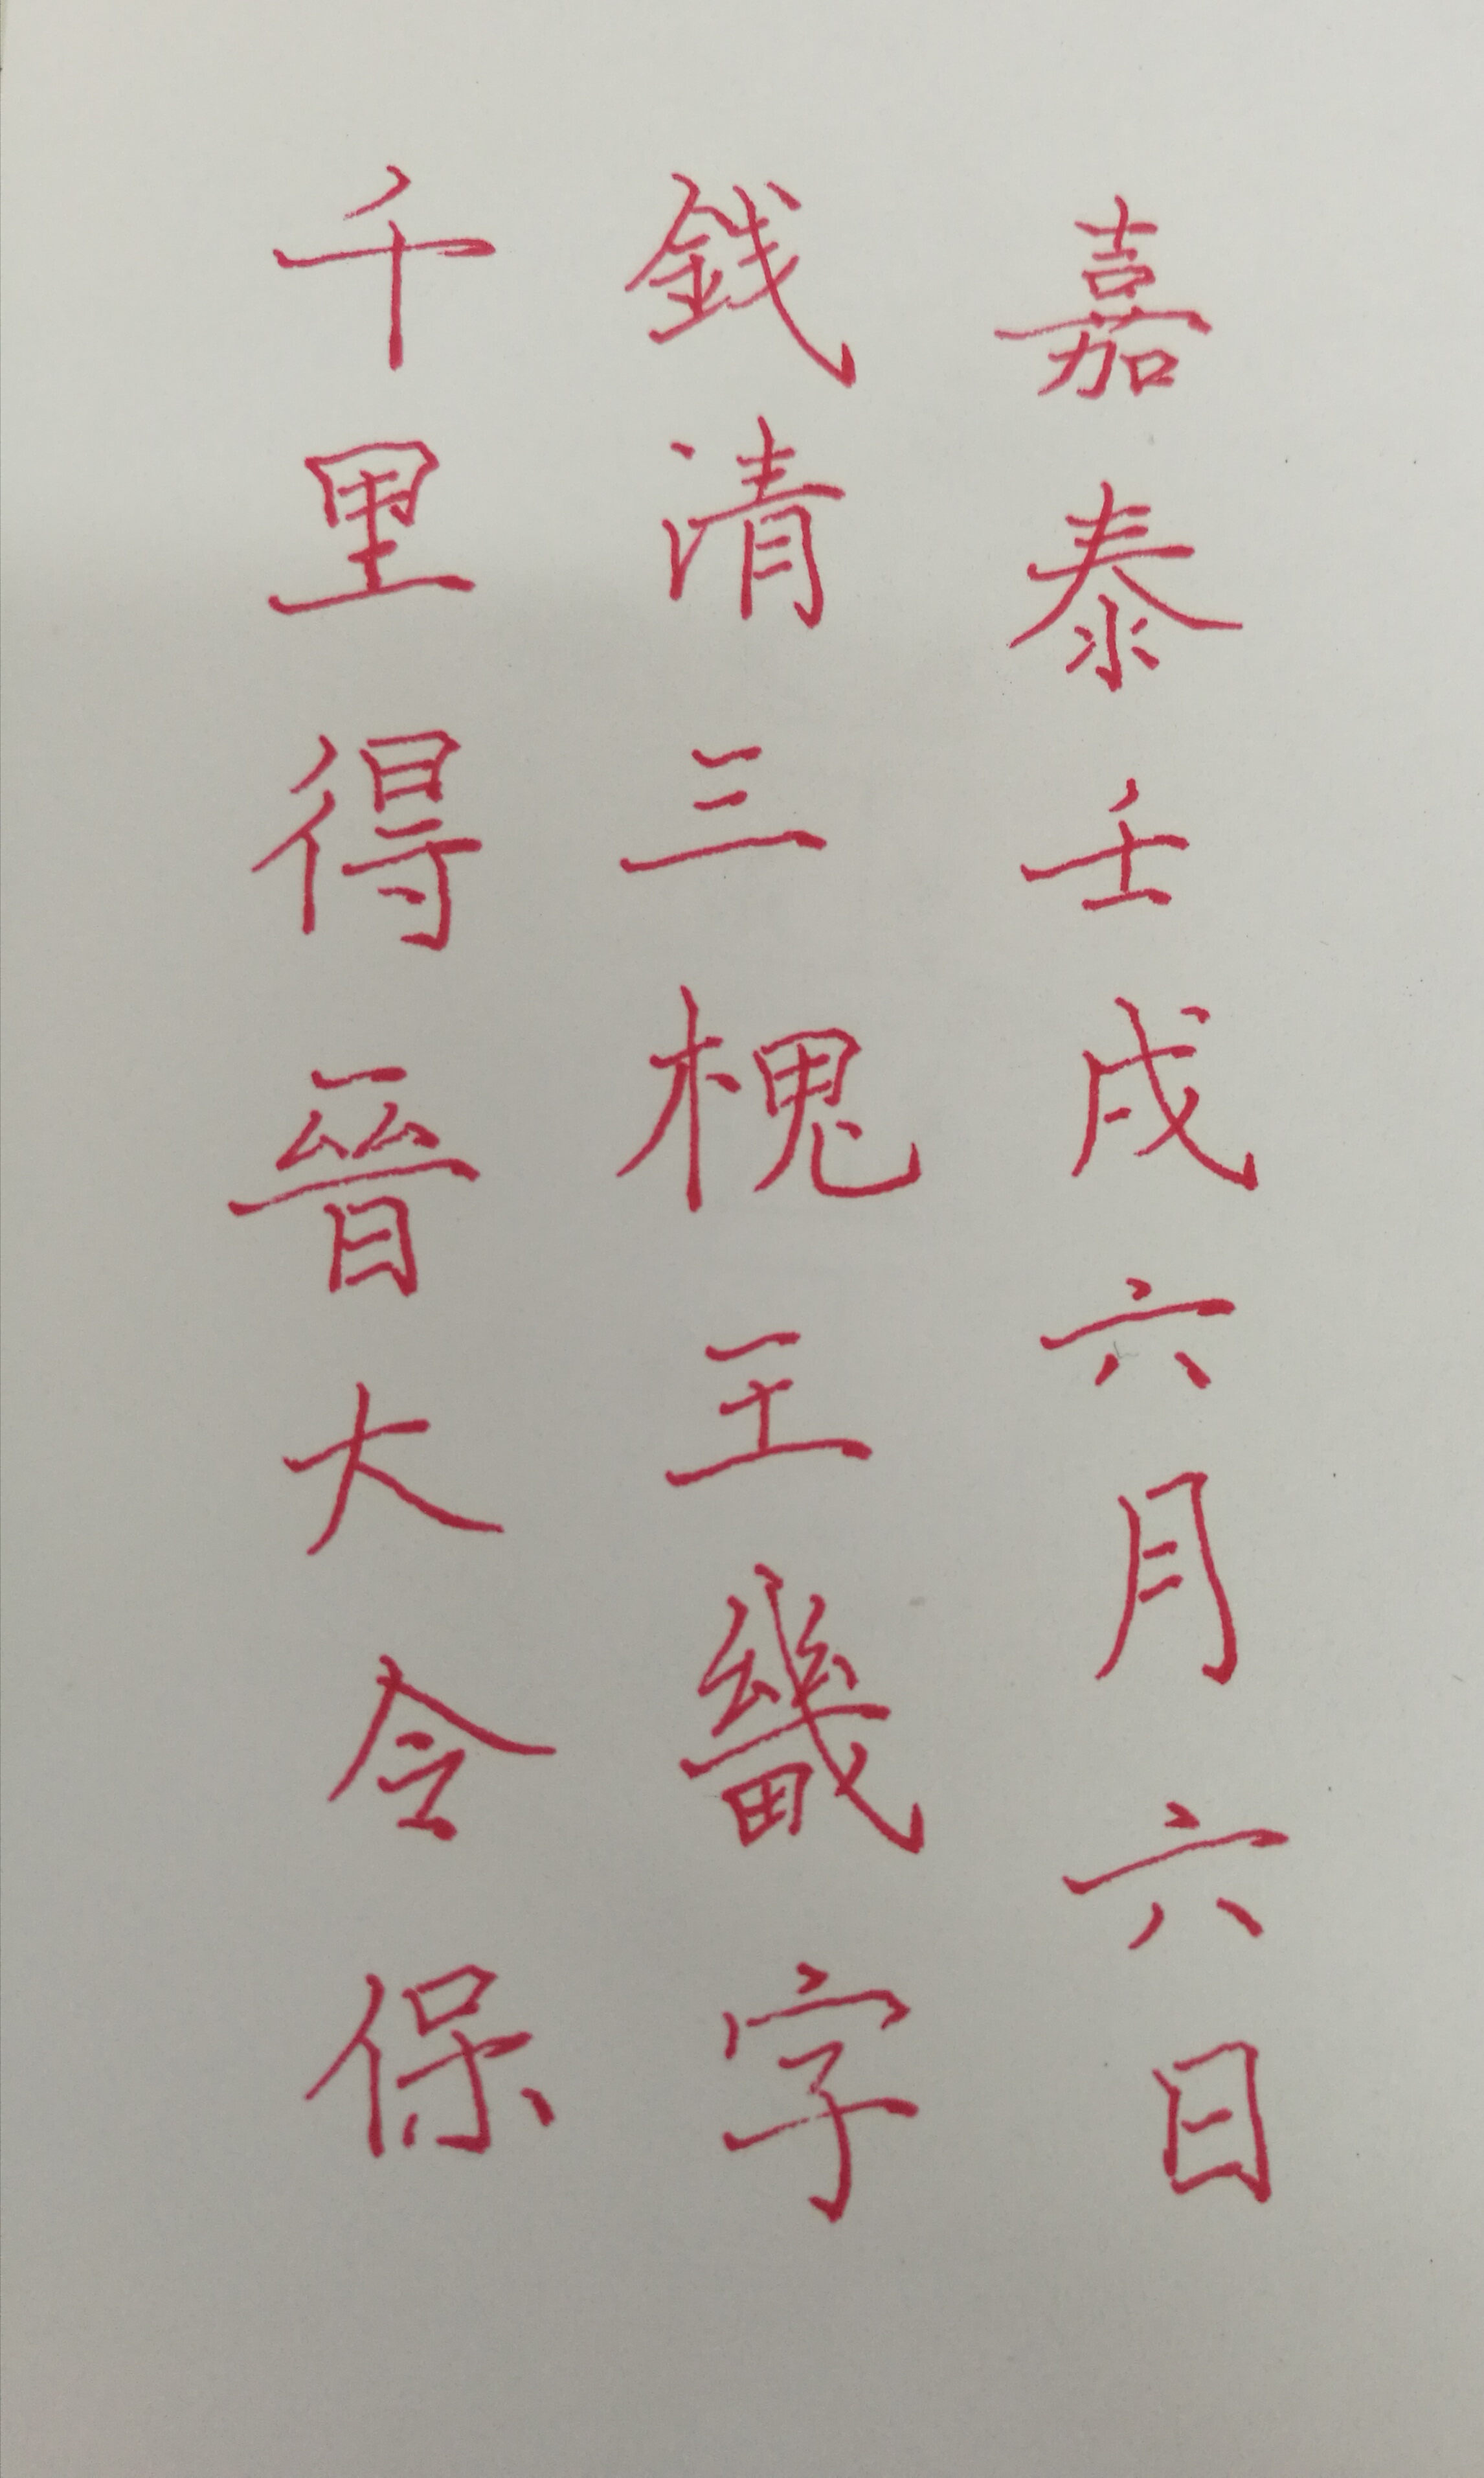 嘉泰壬戌六月六日
銭清三槐王畿字
千里得晉大令保